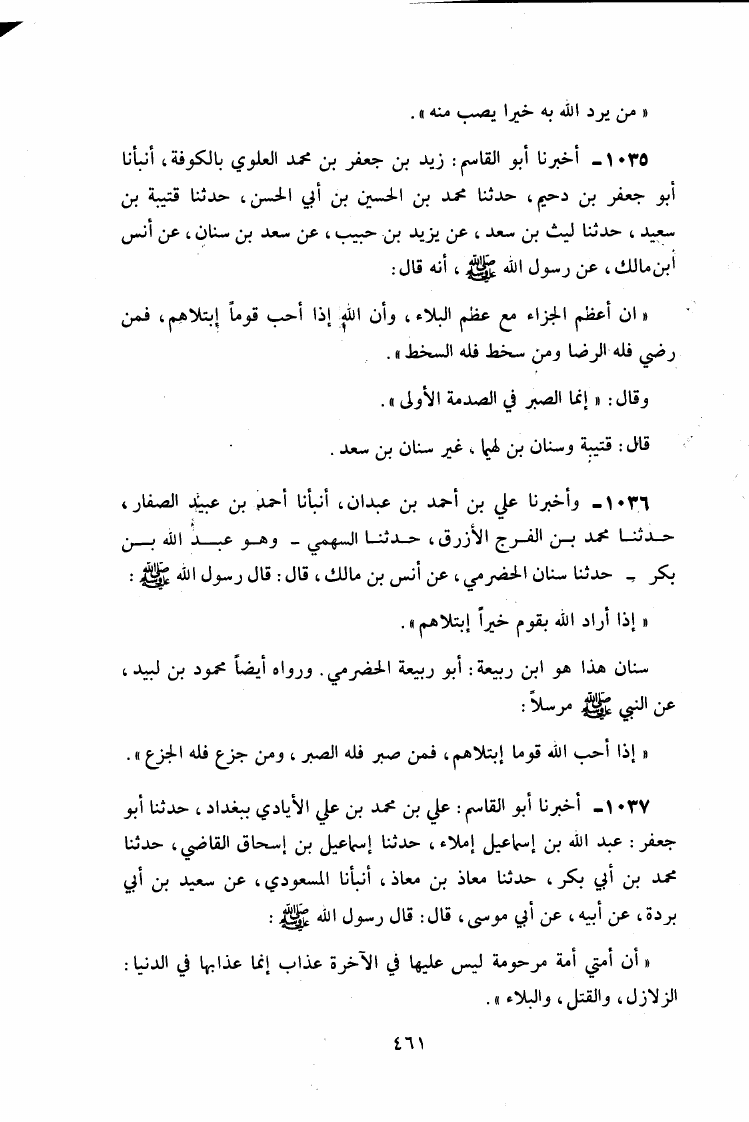 « من يرد الله به خيرا يصب منه ».
١٠٣٥ـ أخبرنا أبو القاسم : زيد بن جعفر بن محمد العلوي بالكوفة ، أنبأنا
أبو جعفر بن دحيم ، حدثنا محمد بن الحسين بن أبي الحسن ، حدثنا قتيبة بن
سعيد ، حدثنا ليث بن سعد ، عن يزيد بن حبيب ، عن سعد بن سنان ، عن أنس
ابن مالك ، عن رسول الله ﷺ ، أنه قال :
« ان أعظم الجزاء مع عظم البلاء ، وأن الله إذا أحب قوماً إبتلاهم ، فمن
رضي فله الرضا ومن سخط فله السخط ».
وقال : « إنما الصبر في الصدمة الأولى ».
قال : قتيبة وسنان بن لهيا ، غير سنان بن سعد .
١٠٣٦ـ وأخبرنا علي بن أحمد بن عبدان ، أنبأنا أحمد بن عبيد الصفار ،
حدثنا محمد بن الفرج الأزرق ، حدثنا السهمي ـ وهو عبد الله بن
بكر ـ حدثنا سنان الحضرمي ، عن أنس بن مالك ، قال : قال رسول الله ﷺ :
« إذا أراد الله بقوم خيراً إبتلاهم ».
سنان هذا هو ابن ربيعة : أبو ربيعة الحضرمي . ورواه أيضاً محمود بن لبيد ،
عن النبي ﷺ مرسلاً :
« إذا أحب الله قوما إبتلاهم ، فمن صبر فله الصبر ، ومن جزع فله الجزع ».
١٠٣٧ـ أخبرنا أبو القاسم : علي بن محمد بن علي الأيادي ببغداد ، حدثنا أبو
جعفر : عبد الله بن إسماعيل إملاء ، حدثنا إسماعيل بن إسحاق القاضي ، حدثنا
محمد بن أبي بكر ، حدثنا معاذ بن معاذ ، أنبأنا المسعودي ، عن سعيد بن أبي
بردة ، عن أبيه ، عن أبي موسى ، قال : قال رسول الله ﷺ :
« أن أمتي أمة مرحومة ليس عليها في الآخرة عذاب إنما عذابها في الدنيا :
الزلازل ، والقتل ، والبلاء ».
٤٦١